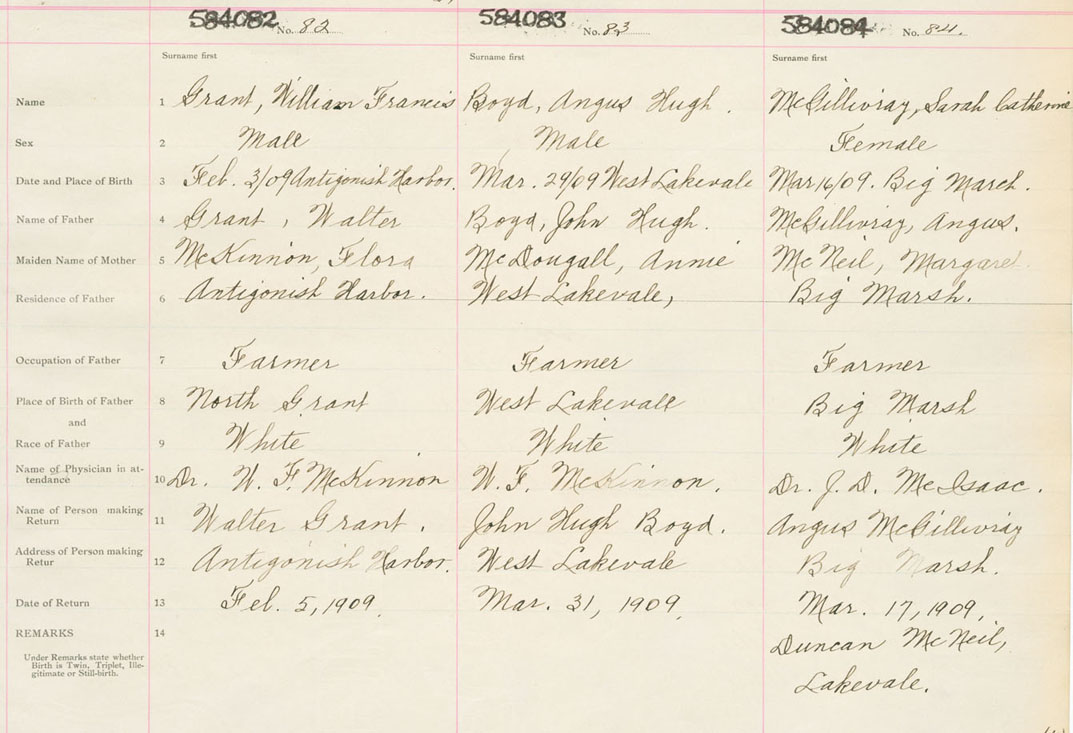 584082 No. 82 584083 No. 83 584084 No. 84.
Surname first Surname first Surname first
Name 1 Grant, William Francis Boyd, Angus Hugh. McGillivray, Sarah Catherine
Sex 2 Male Male Female
Date and Place of Birth 3 Feb. 3/09 Antigonish Harbor. Mar. 29/09 West Lakevale Mar 16/09. Big March.
Name of Father 4 Grant, Walter Boyd, John Hugh. McGillivray, Angus.
Maiden Name of Mother 5 McKinnon, Flora McDougall, Annie McNeil, Margaret
Residence of Father 6 Antigonish Harbor. West Lakevale, Big Marsh.
Occupation of Father 7 Farmer Farmer Farmer
Place of Birth of Father 8 North Grant West Lakevale Big Marsh
and
Race of Father 9 White White White
Name of Physician in at-
tendance 10 Dr. W. F. McKinnon W. F. McKinnon. Dr. J. D. McIsaac.
Name of Person making
Return 11 Walter Grant. John Hugh Boyd. Angus McGillivray
Address of Person making
Retur 12 Antigonish Harbor. West Lakevale Big Marsh.
Date of Return 13 Feb. 5, 1909. Mar. 31, 1909. Mar. 17, 1909.
REMARKS 14 Duncan McNeil,
Under Remarks state whether
Birth is Twin, Triplet, Ille-
gitimate or Still-birth.
Lakevale.